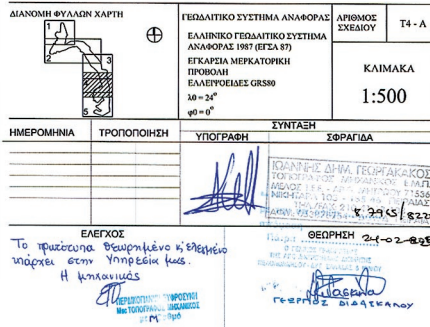 ΔΙΑΝΟΜΗ ΦΥΛΛΩΝ ΧΑΡΤΗ
1
2
3
4
5
ΓΕΩΔΑΙΤΙΚΟ ΣΥΣΤΗΜΑ ΑΝΑΦΟΡΑΣ
ΕΛΛΗΝΙΚΟ ΓΕΩΔΑΙΤΙΚΟ ΣΥΣΤΗΜΑ
ΑΝΑΦΟΡΑΣ 1987 (ΕΓΣΑ 87)
ΕΓΚΑΡΣΙΑ ΜΕΡΚΑΤΟΡΙΚΗ
ΠΡΟΒΟΛΗ
ΕΛΛΕΙΨΟΕΙΔΕΣ GRS80
λ0 = 24°
φ0 = 0°
ΑΡΙΘΜΟΣ
ΣΧΕΔΙΟΥ
Τ4 - Α
ΚΛΙΜΑΚΑ
1:500
ΗΜΕΡΟΜΗΝΙΑ
ΤΡΟΠΟΠΟΙΗΣΗ
ΣΥΝΤΑΞΗ
ΥΠΟΓΡΑΦΗ
ΣΦΡΑΓΙΔΑ
ΙΩΑΝΝΗΣ ΔΗΜ. ΓΕΩΡΓΑΚΑΚΟΣ
ΤΟΠΟΓΡΑΦΟΣ ΜΗΧΑΝΙΚΟΣ Ε.Μ.Π.
ΜΕΛΟΣ Τ.Ε.Ε.
ΕΛΕΓΧΟΣ
Το πρωτότυπο θεωρημένο κ' ελεγμένο
υπάρχει στην Υπηρεσία μας.
Η μηχανικός
ΤΟΠΟΓΡΑΦΟΣ ΜΗΧΑΝΙΚΟΣ
ΘΕΩΡΗΣΗ
ΓΕΩΡΓΙΟΣ ΔΙΔΑΣΚΑΛΟΥ